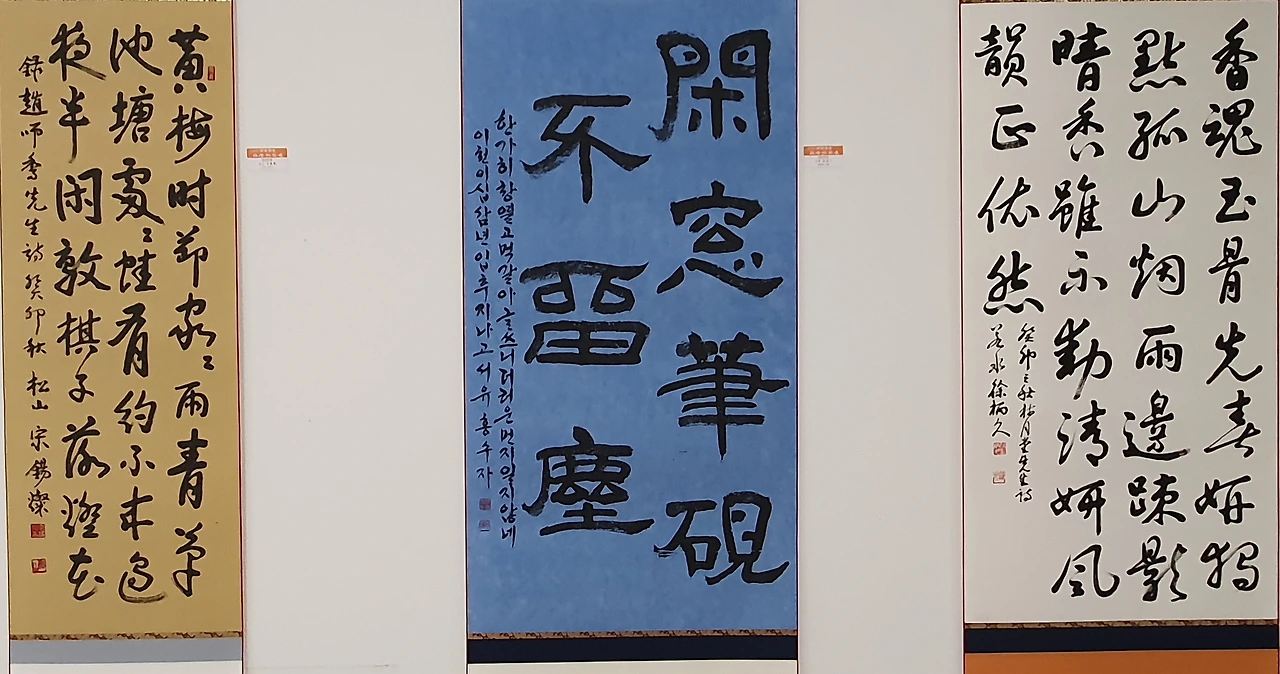 香魂玉骨先春妍獨
點孤山烟雨邊疎影
晴香雖不動清妍風
韻正依然
癸卯之秋梅月堂先生詩
若水徐柄久
閑窓筆硯
不畱塵
한가히 창열고 먹갈아 글쓰니 더러운 먼지일지않네
이천이십삼년 입추지나고 서유 홍수자
黃梅时節家〻雨青草
池塘處〻蛙有約不來過
夜半闲敲棋子落燈花
録趙師秀先生詩癸卯秋松山宋錫燦